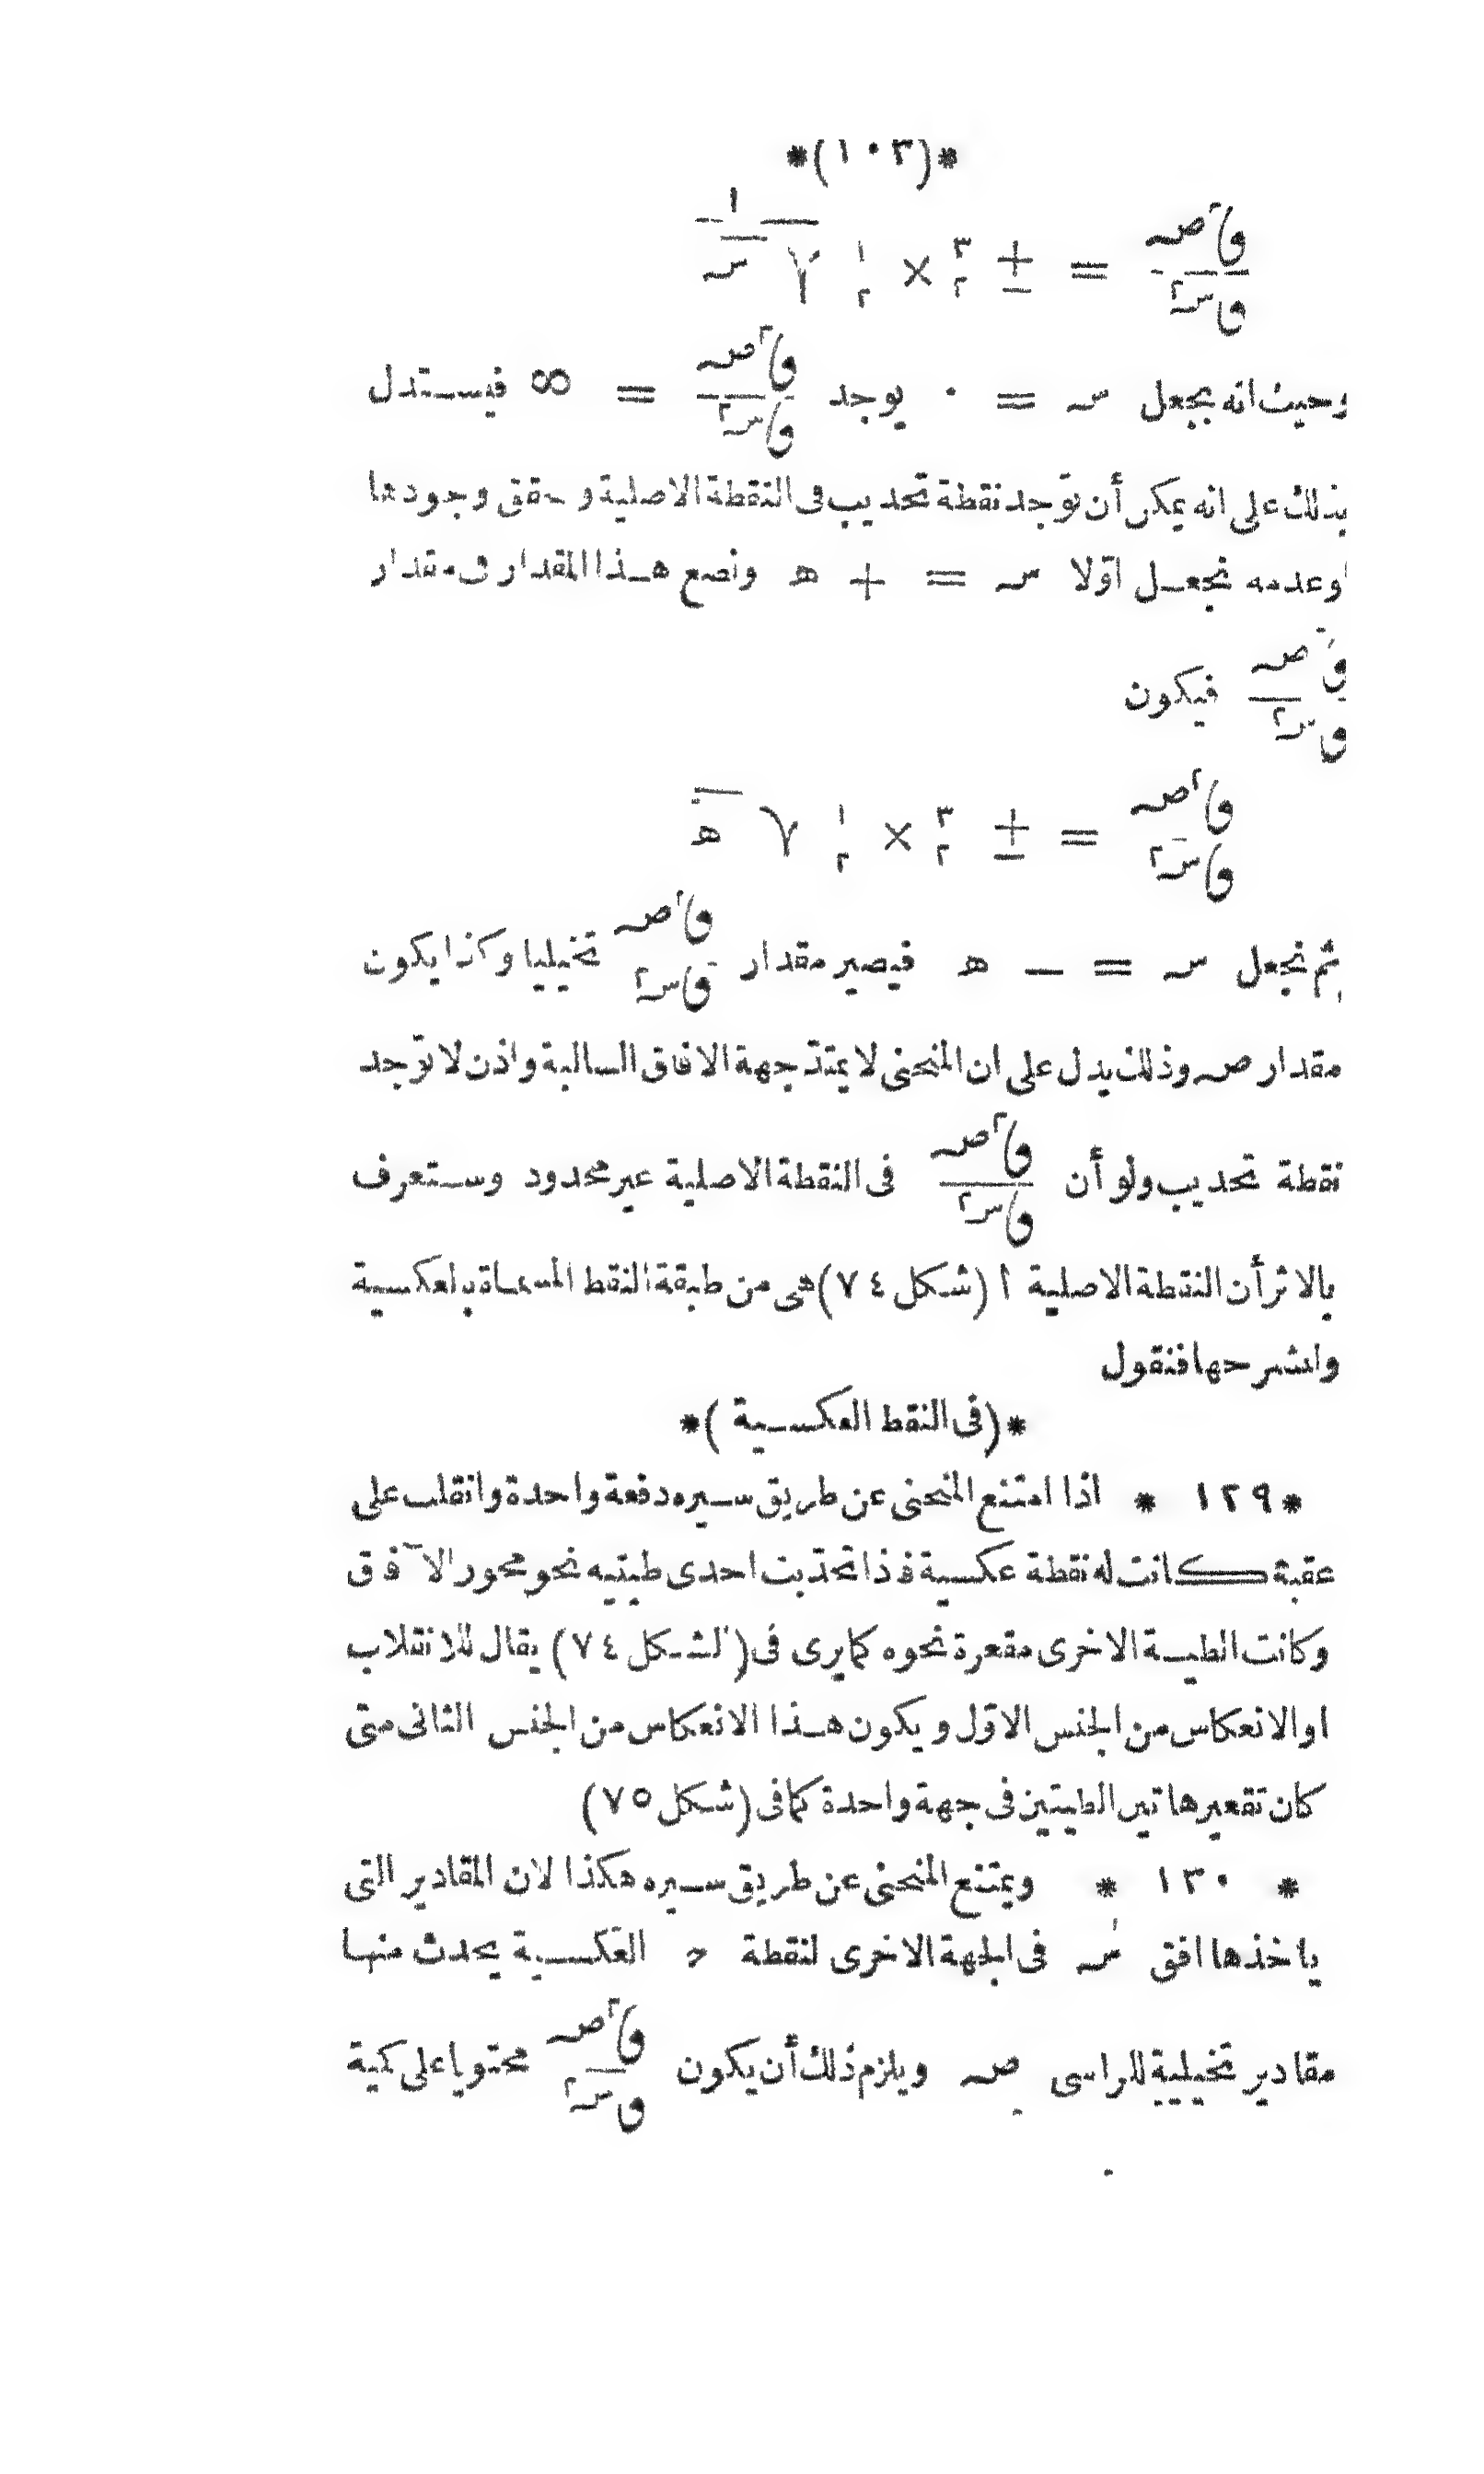 *(١٠٣)*
ق٢صہ / قسہ٢ = ± ٣/٢ × ١/٢ √(١/سہ)
وحيث انه بجعل سہ = ٠ يوجد ق٢صہ / قسہ٢ = ∞ فيستدل
بذلك على انه يمكن أن توجد نقطة تحديب فى النقطة الاصلية و حقق وجودها
اوعدمه نجعل اوّلا سہ = + ه ونضع هذا المقدار فى مقدار
ق٢صہ / قسہ٢ فيكون
ق٢صہ / قسہ٢ = ± ٣/٢ × ١/٢ √ه
ثم نجعل سہ = — ه فيصير مقدار ق٢صہ / قسہ٢ تخيليا وكذا يكون
مقدار صہ وذلك يدل على ان المنحنى لا يمتدّ جهة الافاق السالبة واذن لا توجد
نقطة تحديب ولو أن ق٢صہ / قسہ٢ فى النقطة الاصلية غير محدود وستعرف
بالاثر أن النقطة الاصلية ا (شكل ٧٤) هى من طبقة النقط المسماة بالعكسية
ولنشرحها فنقول
*(فى النقط العكسية)*
*١٢٩* اذا امتنع المنحنى عن طريق سيره دفعة واحدة وانقلب على
عقبة كانت له نقطة عكسية فاذا تحدّبت احدى طيتيه نحو محور الآفاق
وكانت الطية الاخرى مقعرة نحوه كما يرى فى (الشكل ٧٤) يقال للانقلاب
او الانعكاس من الجنس الاوّل ويكون هذا الانعكاس من الجنس الثانى متى
كان تقعير هاتين الطيتين فى جهة واحدة كما فى (شكل ٧٥)
* ١٣٠ * ويمتنع المنحنى عن طريق سيره هكذا لان المقادير التى
ياخذها افق سہَ فى الجهة الاخرى لنقطة ح العكسية يحدث منها
مقادير تخيلية للراسى صہ ويلزم ذلك أن يكون ق٢صہ / قسہ٢ محتويا على كمية